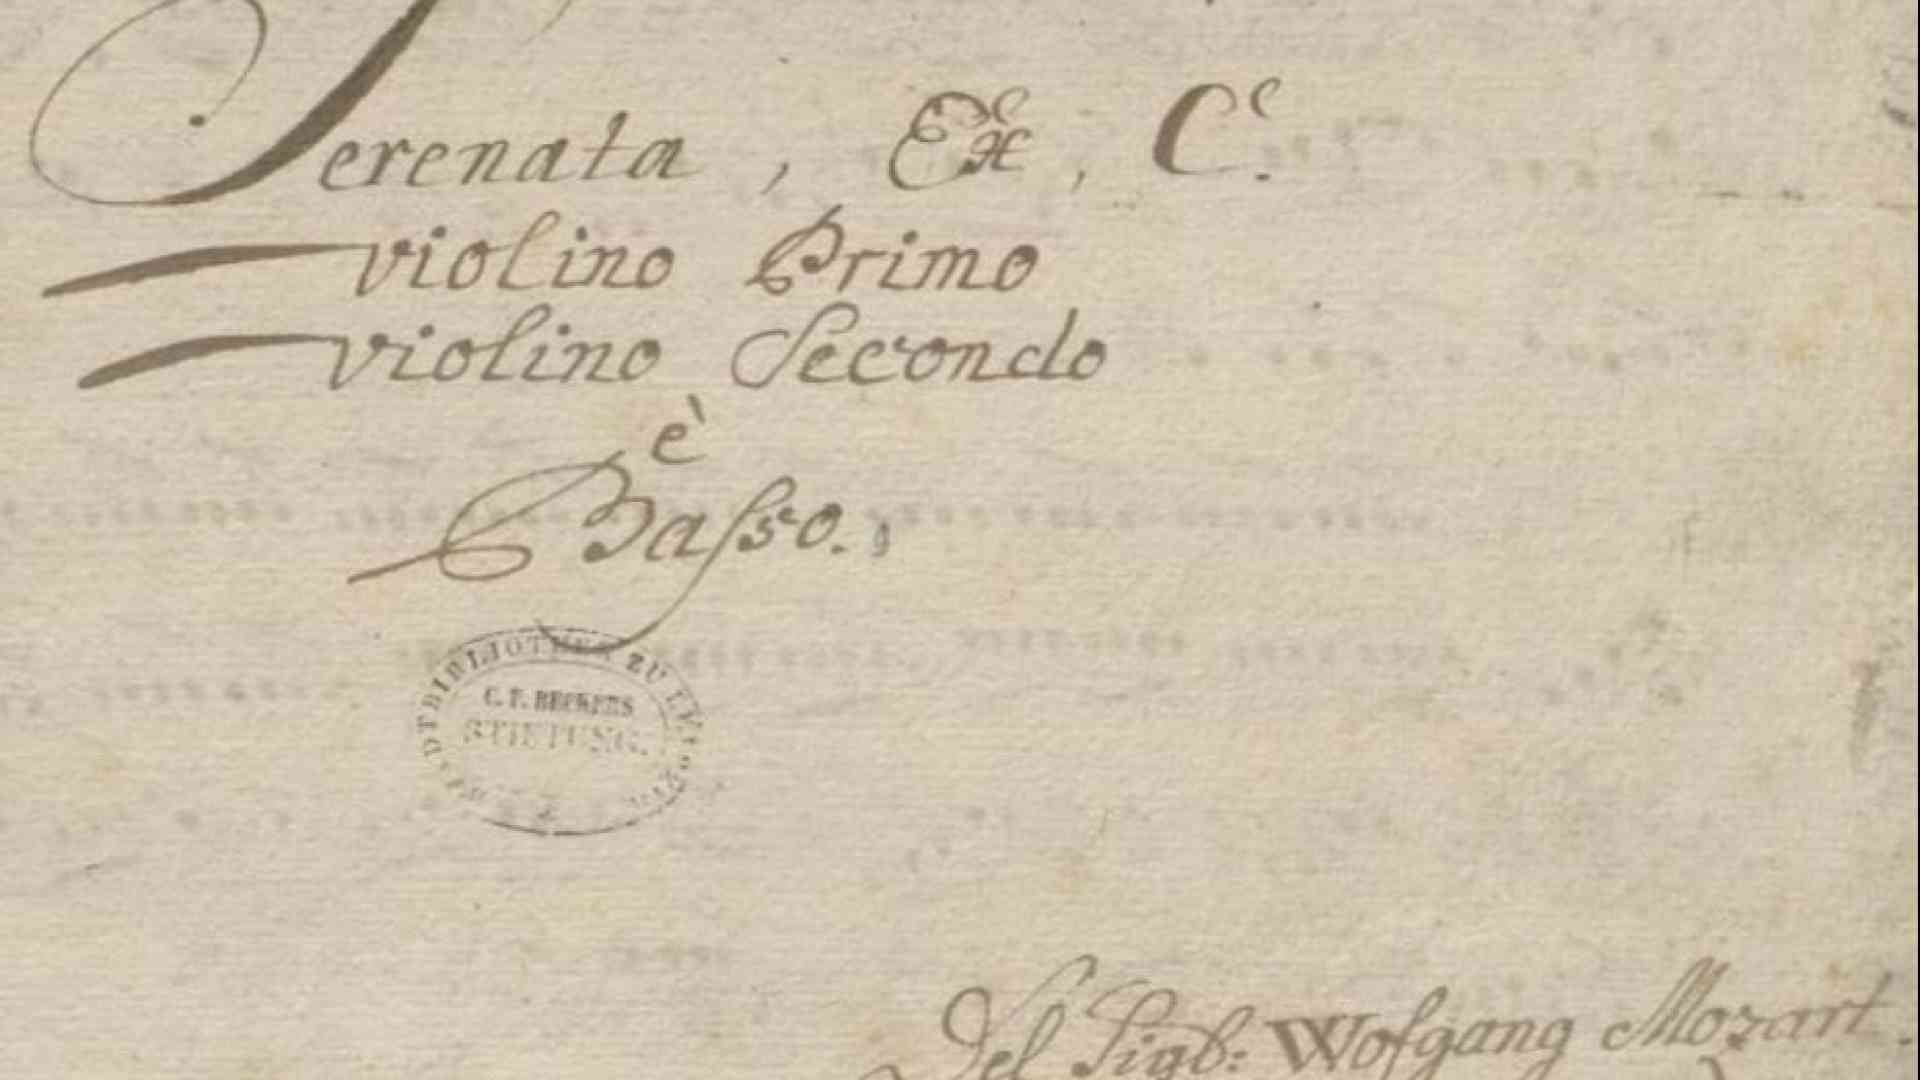 Serenata, Ex, C.
violino Primo
violino Secondo
è
Baſso.
STADTBIBLIOTHEK ZU LEIPZIG
C. F. BECKERS
STIFTUNG.
Del Sigb: Wofgang Mozart.